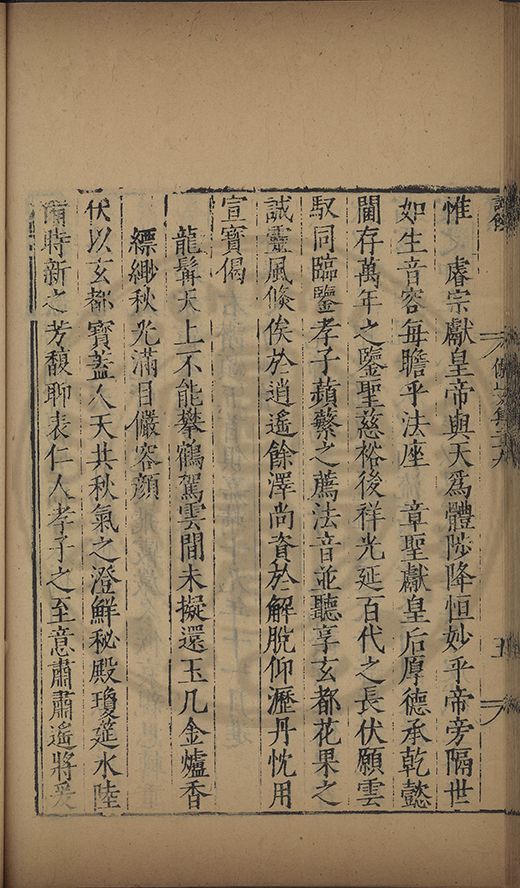 惟　睿宗獻皇帝與天爲體陟降恒妙乎帝旁隔世
如生音容每瞻乎法座　章聖獻皇后厚德承乾懿
閫存萬年之鑒聖慈裕後祥光延百代之長伏願雲
馭同臨鑒孝子蘋蘩之薦法音並聽享玄都花果之
誠靈風倏俟於逍遙餘澤尚資於解脫仰瀝丹忱用
宣寳偈
龍髯天上不能攀鶴駕雲間未擬還玉几金爐香
縹緲秋光滿目儼容顏
伏以玄都寳蓋人天共秋氣之澄鮮秘殿瓊筵水陸
備時新之芳馥聊表仁人孝子之至意肅肅遙將爰